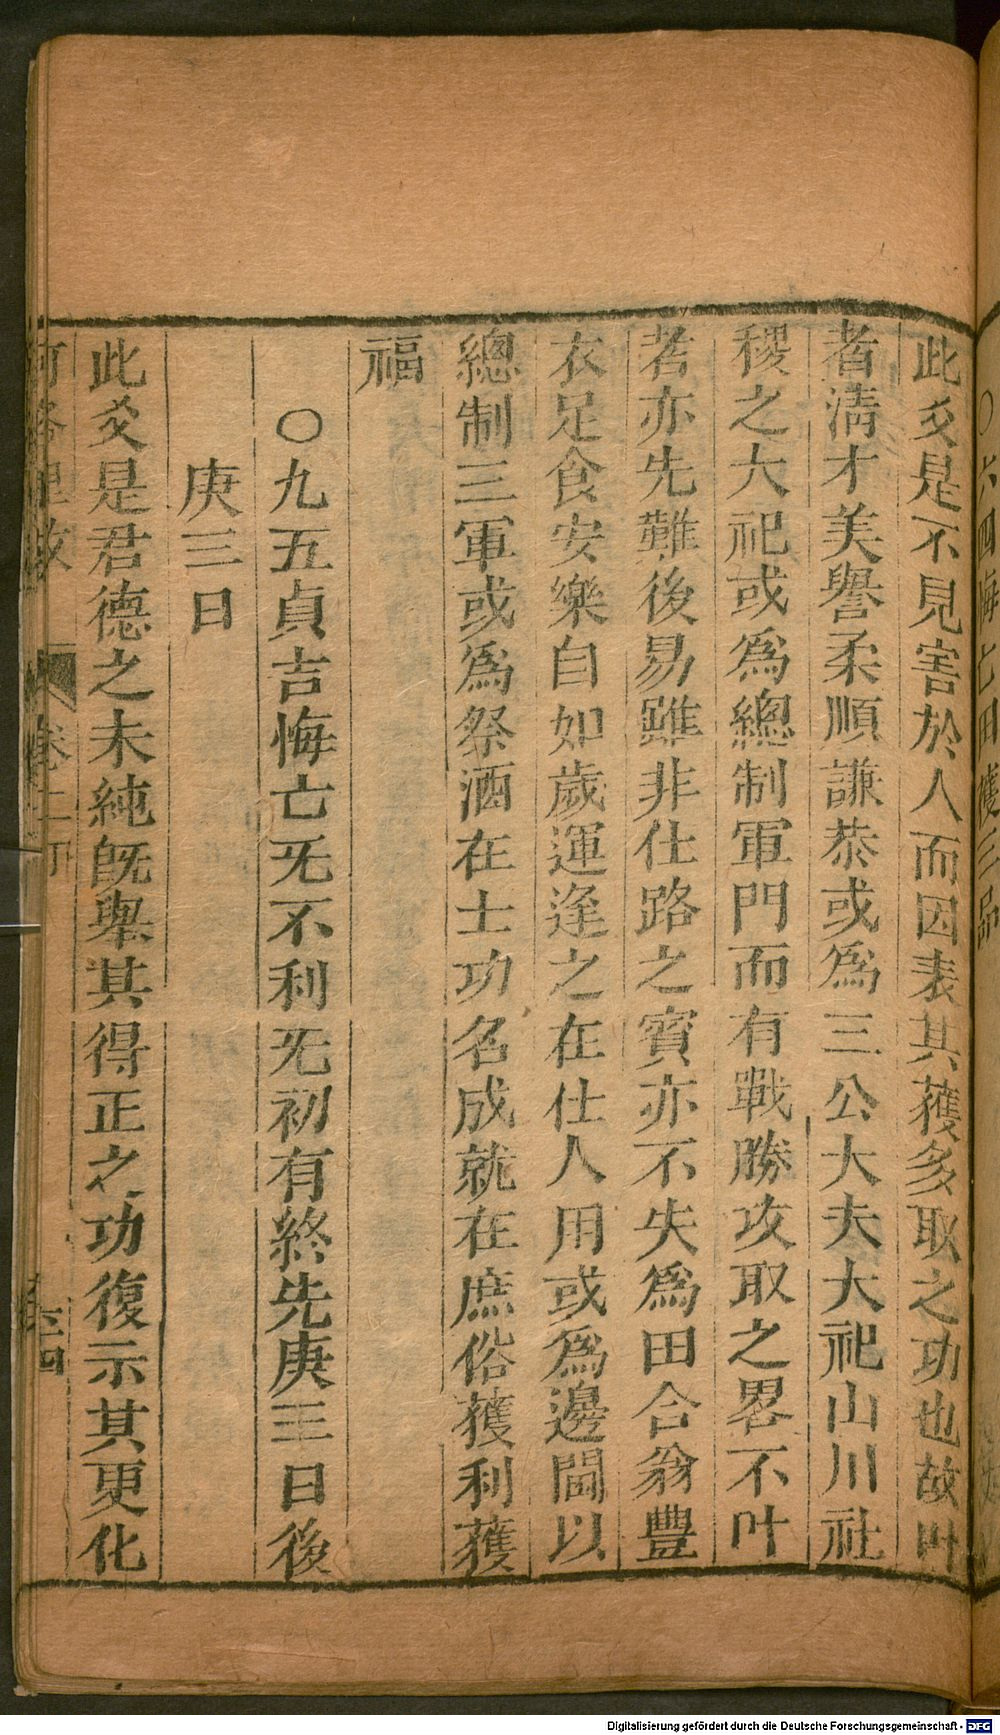 ○六四悔亡田獲三品
此爻是不見害於人而因表其獲多取之功也故叶
者淸才美譽柔順謙恭或爲三公大夫大祀山川社
稷之大祀或爲總制軍門而有戰勝攻取之畧不叶
者亦先難後易雖非仕路之賓亦不失爲田合翁豐
衣足食安樂自如歲運逢之在仕人用或爲邊閫以
總制三軍或爲祭酒在士功名成就在庶俗獲利獲
福
○九五貞吉悔亡无不利无初有終先庚三日後
庚三日
此爻是君德之未純旣舉其得正之功復示其更化
Digitalisierung gefördert durch die Deutsche Forschungsgemeinschaft - DFG